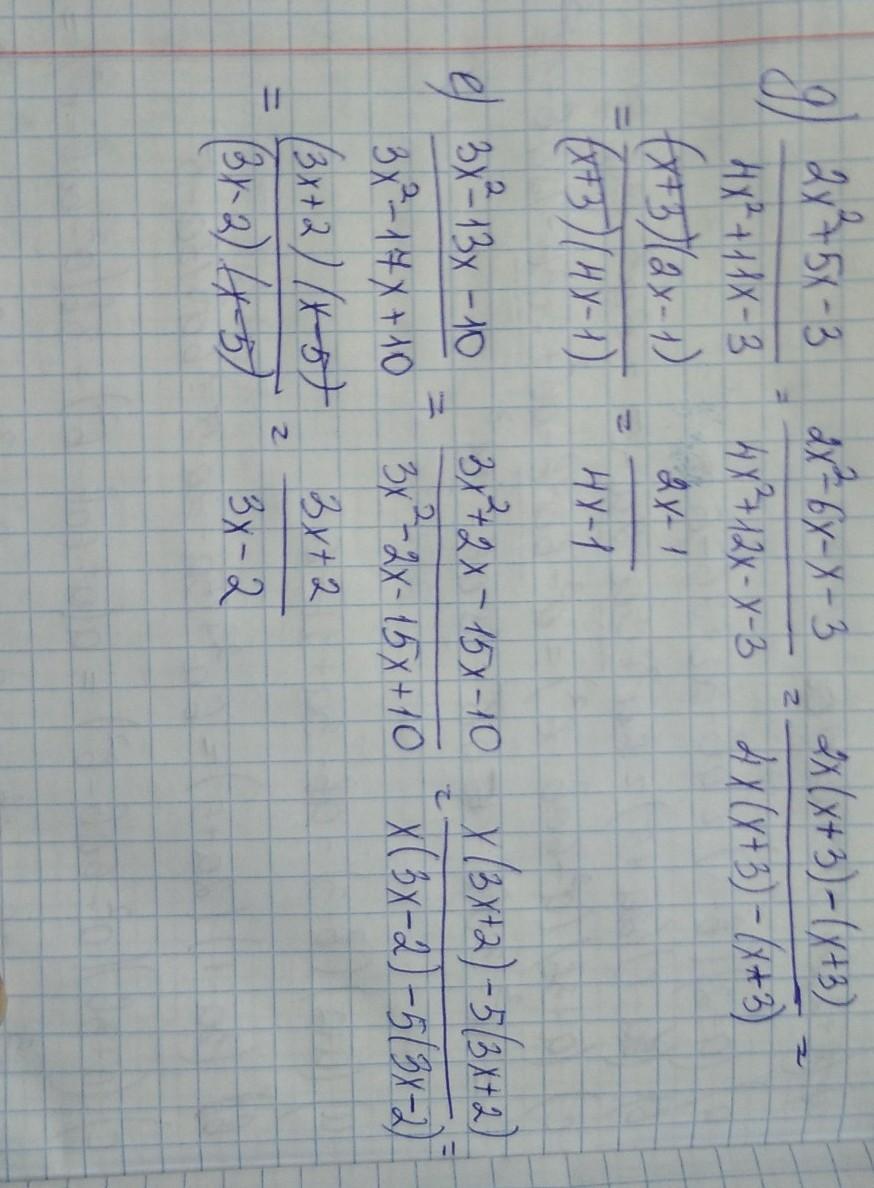 д) (2x²+5x-3)/(4x²+11x-3) = (2x²-6x-x-3)/(4x²+12x-x-3) = (2x(x+3)-(x+3))/(4x(x+3)-(x+3)) =
= ((x+3)(2x-1))/((x+3)(4x-1)) = (2x-1)/(4x-1)
е) (3x²-13x-10)/(3x²-17x+10) = (3x²+2x-15x-10)/(3x²-2x-15x+10) = (x(3x+2)-5(3x+2))/(x(3x-2)-5(3x-2)) =
= ((3x+2)(x-5))/((3x-2)(x-5)) = (3x+2)/(3x-2)